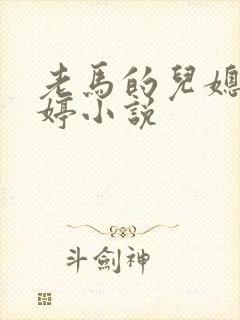 老馬的兒媳
婷小說
斗劍神